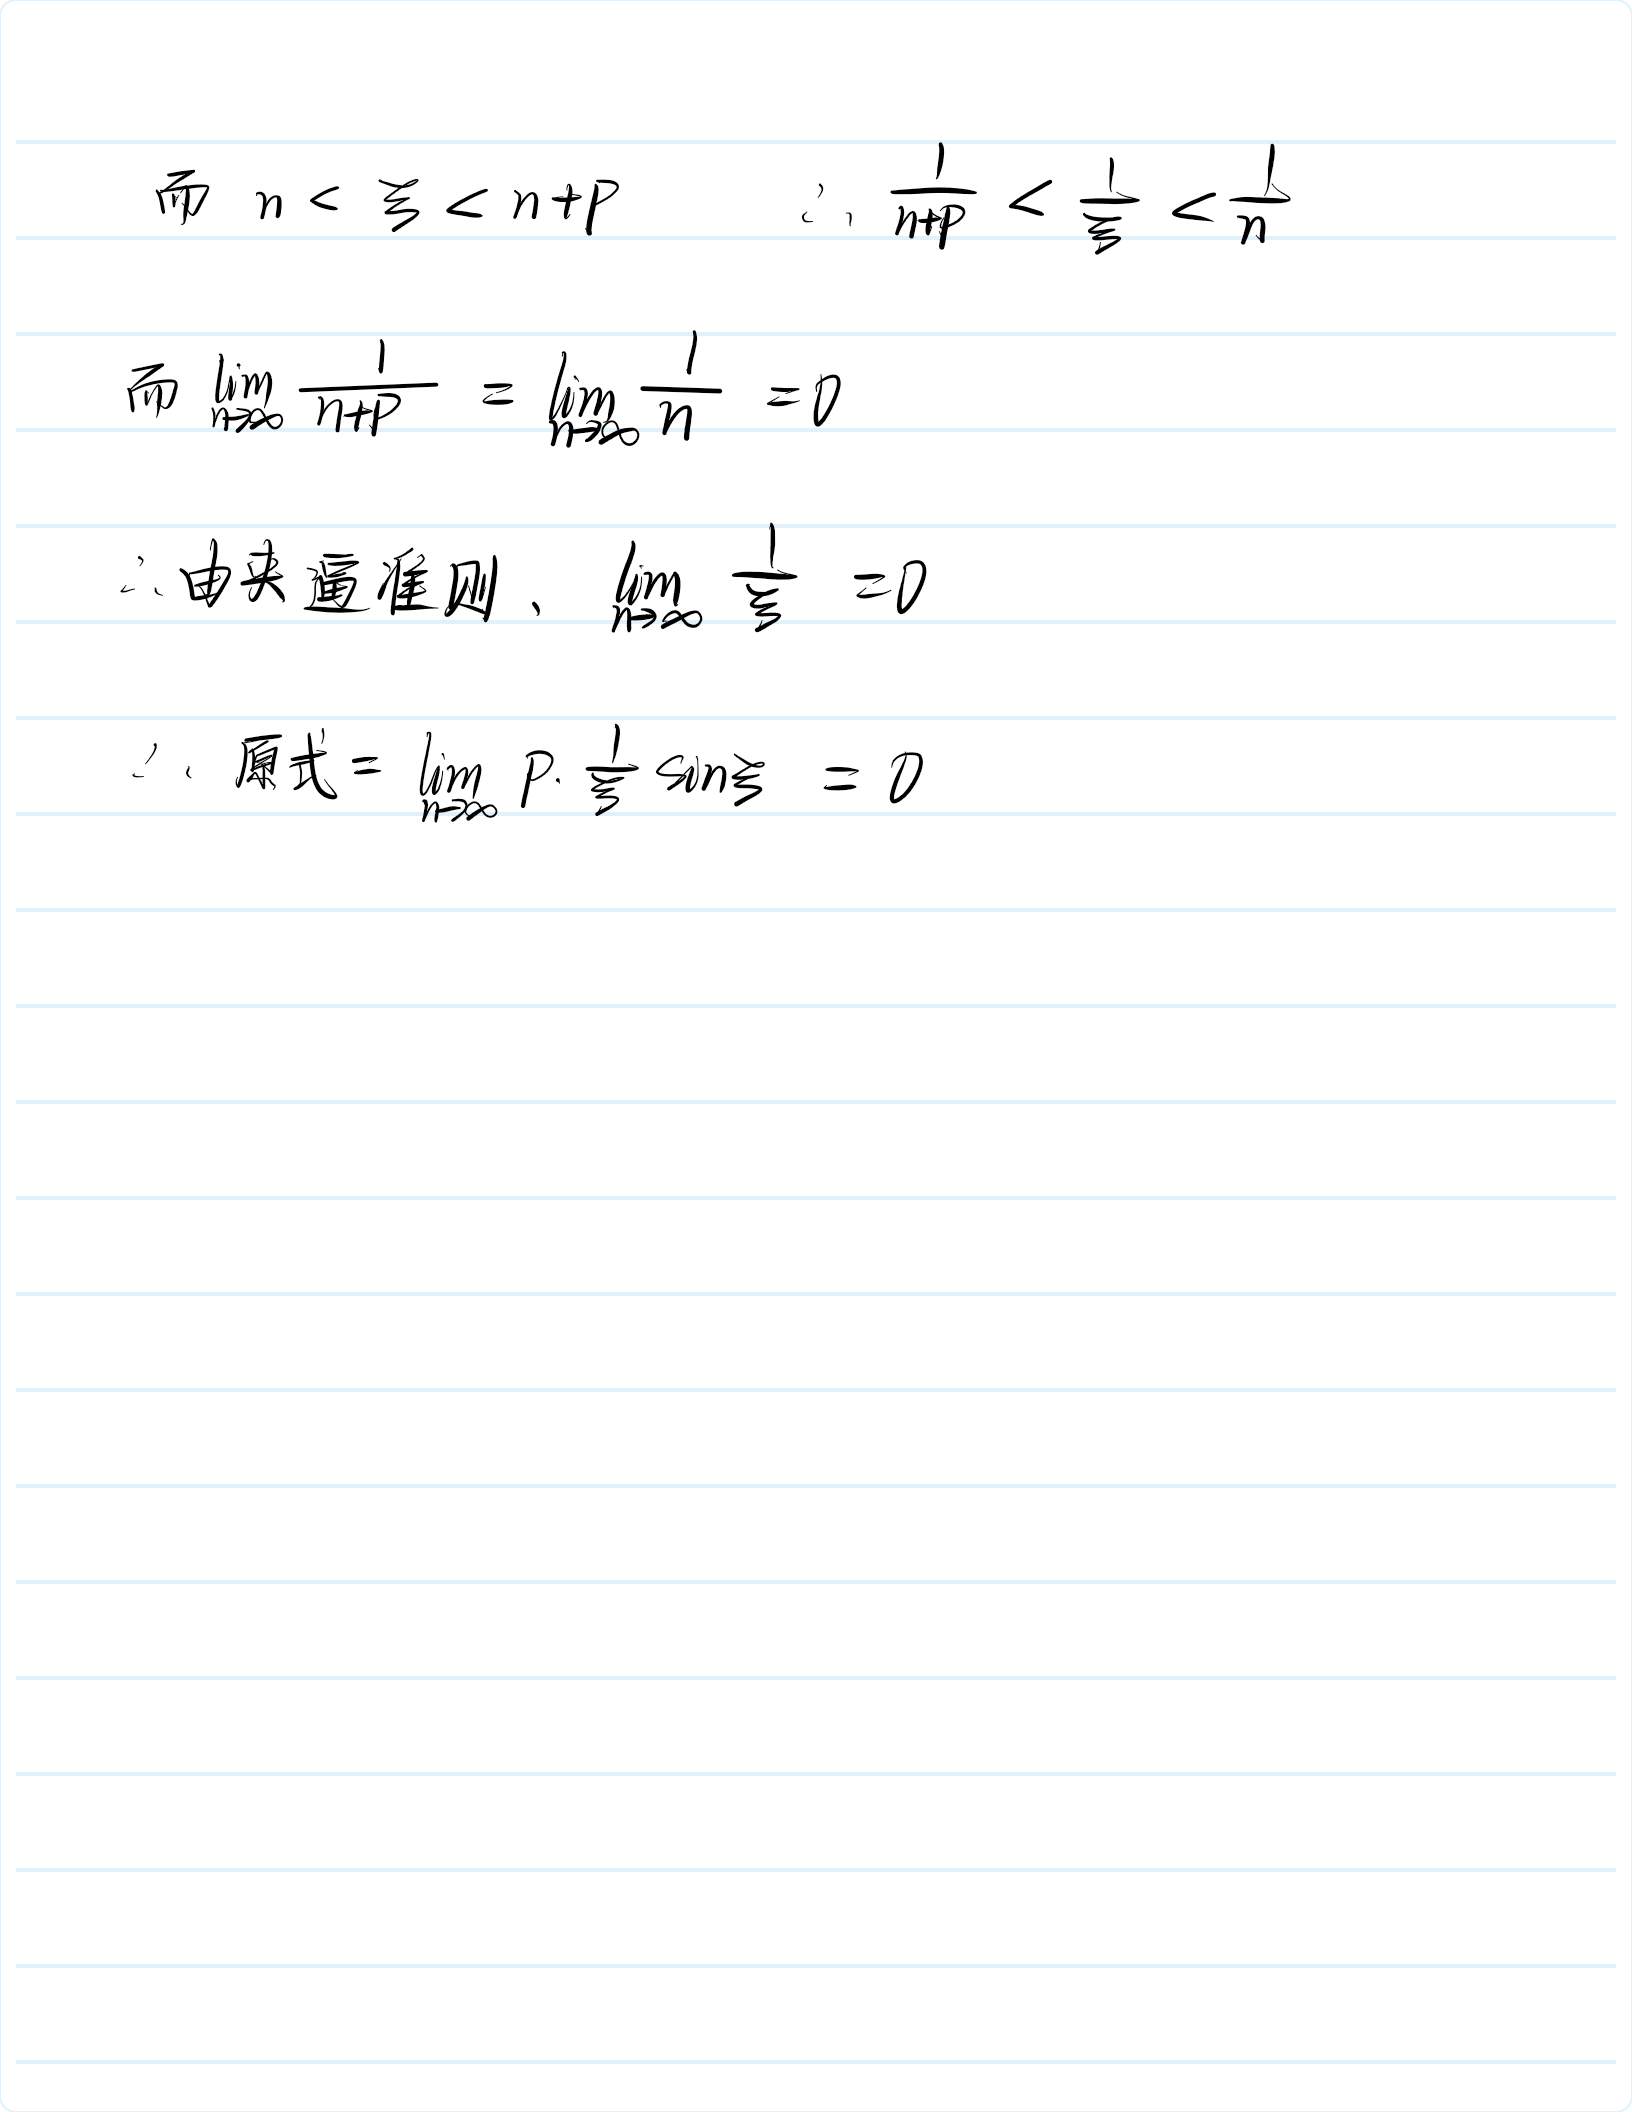 而 n < ξ < n+p ∴ 1/(n+p) < 1/ξ < 1/n
而 lim_{n→∞} 1/(n+p) = lim_{n→∞} 1/n = 0
∴ 由夹逼准则、 lim_{n→∞} 1/ξ = 0
∴ 原式 = lim_{n→∞} p · 1/ξ sinξ = 0